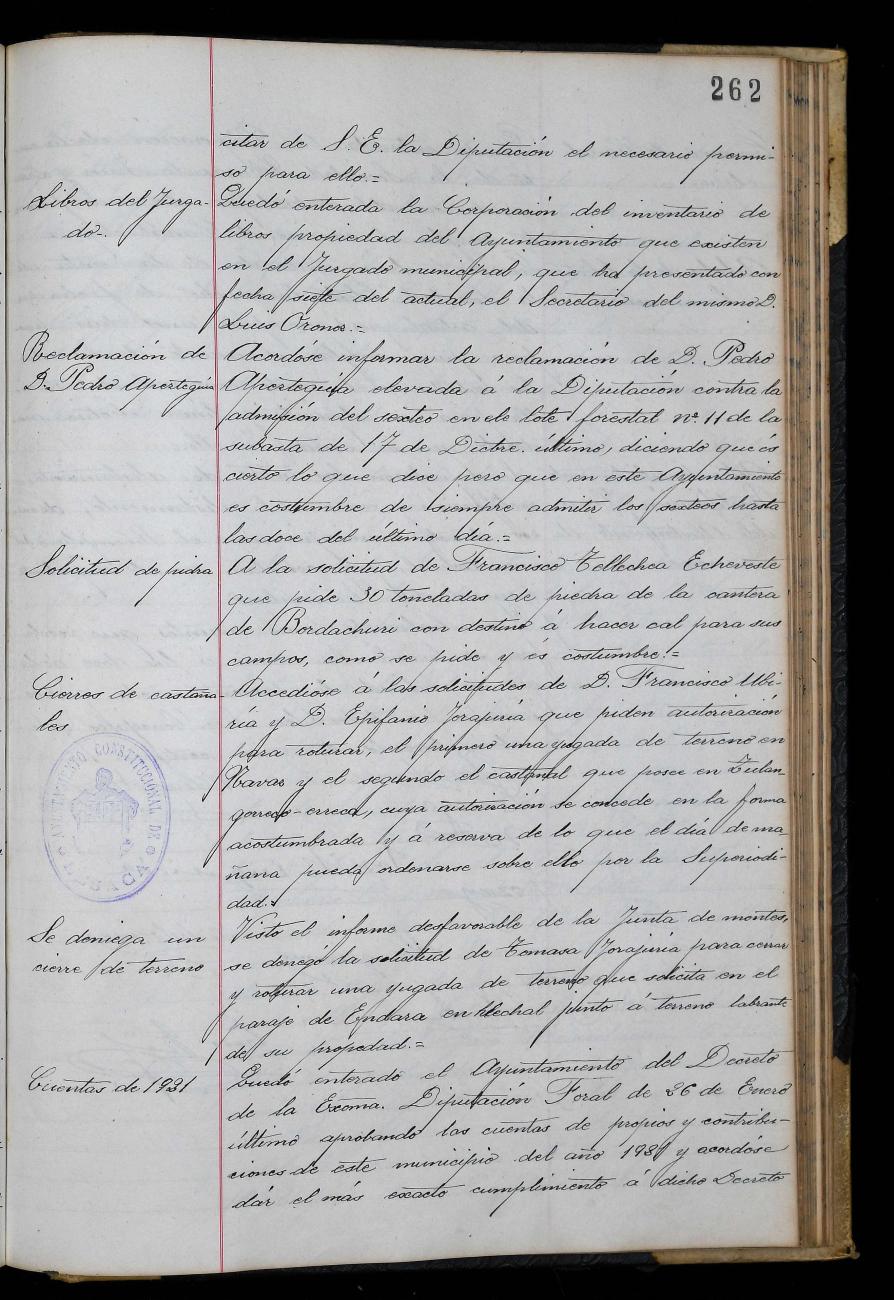 262
citar de S. E. la Diputación el necesario permi-
so para ello.=
Libros del Juzga-
do-.
Quedó enterada la Corporación del inventario de
libros propiedad del Ayuntamiento que existen
en el Juzgado municipal, que ha presentado con
fecha siete del actual, el Secretario del mismo D.
Luis Oronoz.=
Reclamación de
D. Pedro Aperteguia
Acordóse informar la reclamación de D. Pedro
Aperteguia elevada á la Diputación contra la
admisión del sexteo en el lote forestal nº. 11 de la
subasta de 17 de Dictre. último, diciendo que és
cierto lo que dice pero que en este Ayuntamiento
es costumbre de siempre admitir los sexteos hasta
las doce del último día.=
Solicitud de pidra
A la solicitud de Francisco Tellechea Echeveste
que pide 30 toneladas de piedra de la cantera
de Bordachuri con destino á hacer cal para sus
campos, como se pide y és costumbre.=
Cierros de castaña-
les
Accedióse á las solicitudes de D. Francisco Ubi-
ría y D. Epifanio Jorajuria que piden autorización
para roturar, el primero una yugada de terreno en
Navaz y el segundo el castañal que posee en Zulan-
gorreco-erreca, cuya autorización se concede en la forma
acostumbrada y á reserva de lo que el día de ma-
ñana pueda ordenarse sobre ello por la Superiodi-
dad.=
AYUNTAMIENTO CONSTITUCIONAL DE
LESACA
Se deniega un
cierre de terreno
Visto el informe desfavorable de la Junta de montes,
se denegó la solicitud de Tomasa Jorajuria para cerrar
y roturar una yugada de terreno que solicita en el
paraje de Endara en helechal junto á terreno labrante
de su propedad.=
Cuentas de 1931
Quedó enterado el Ayuntamiento del Decreto
de la Excma. Diputación Foral de 26 de Enero
último aprobando las cuentas de propios y contribu-
ciones de este municipio del año 1931 y acordóse
dár el más exacto cumplimiento á dicho Decreto